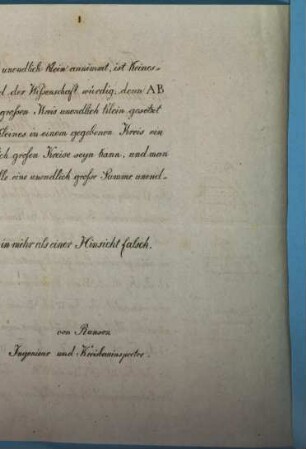 unendlich klein annimmt, ist keines-
der Wißenschaft würdig, denn AB
großen Kreis unendlich klein gesetzt
kleines in einem gegebenen Kreis ein
großen Kreise seyn kann, und man
eine unendlich große Summe unend-
in mehr als einer Hinsicht falsch.
von
Ingenieur und